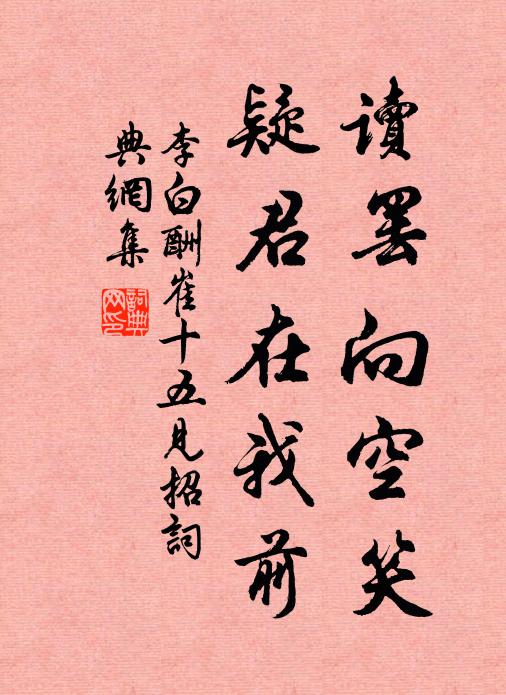 讀罷向空笑
疑君在我前
李白酬崔十五見招詞
典網集
詞典網印